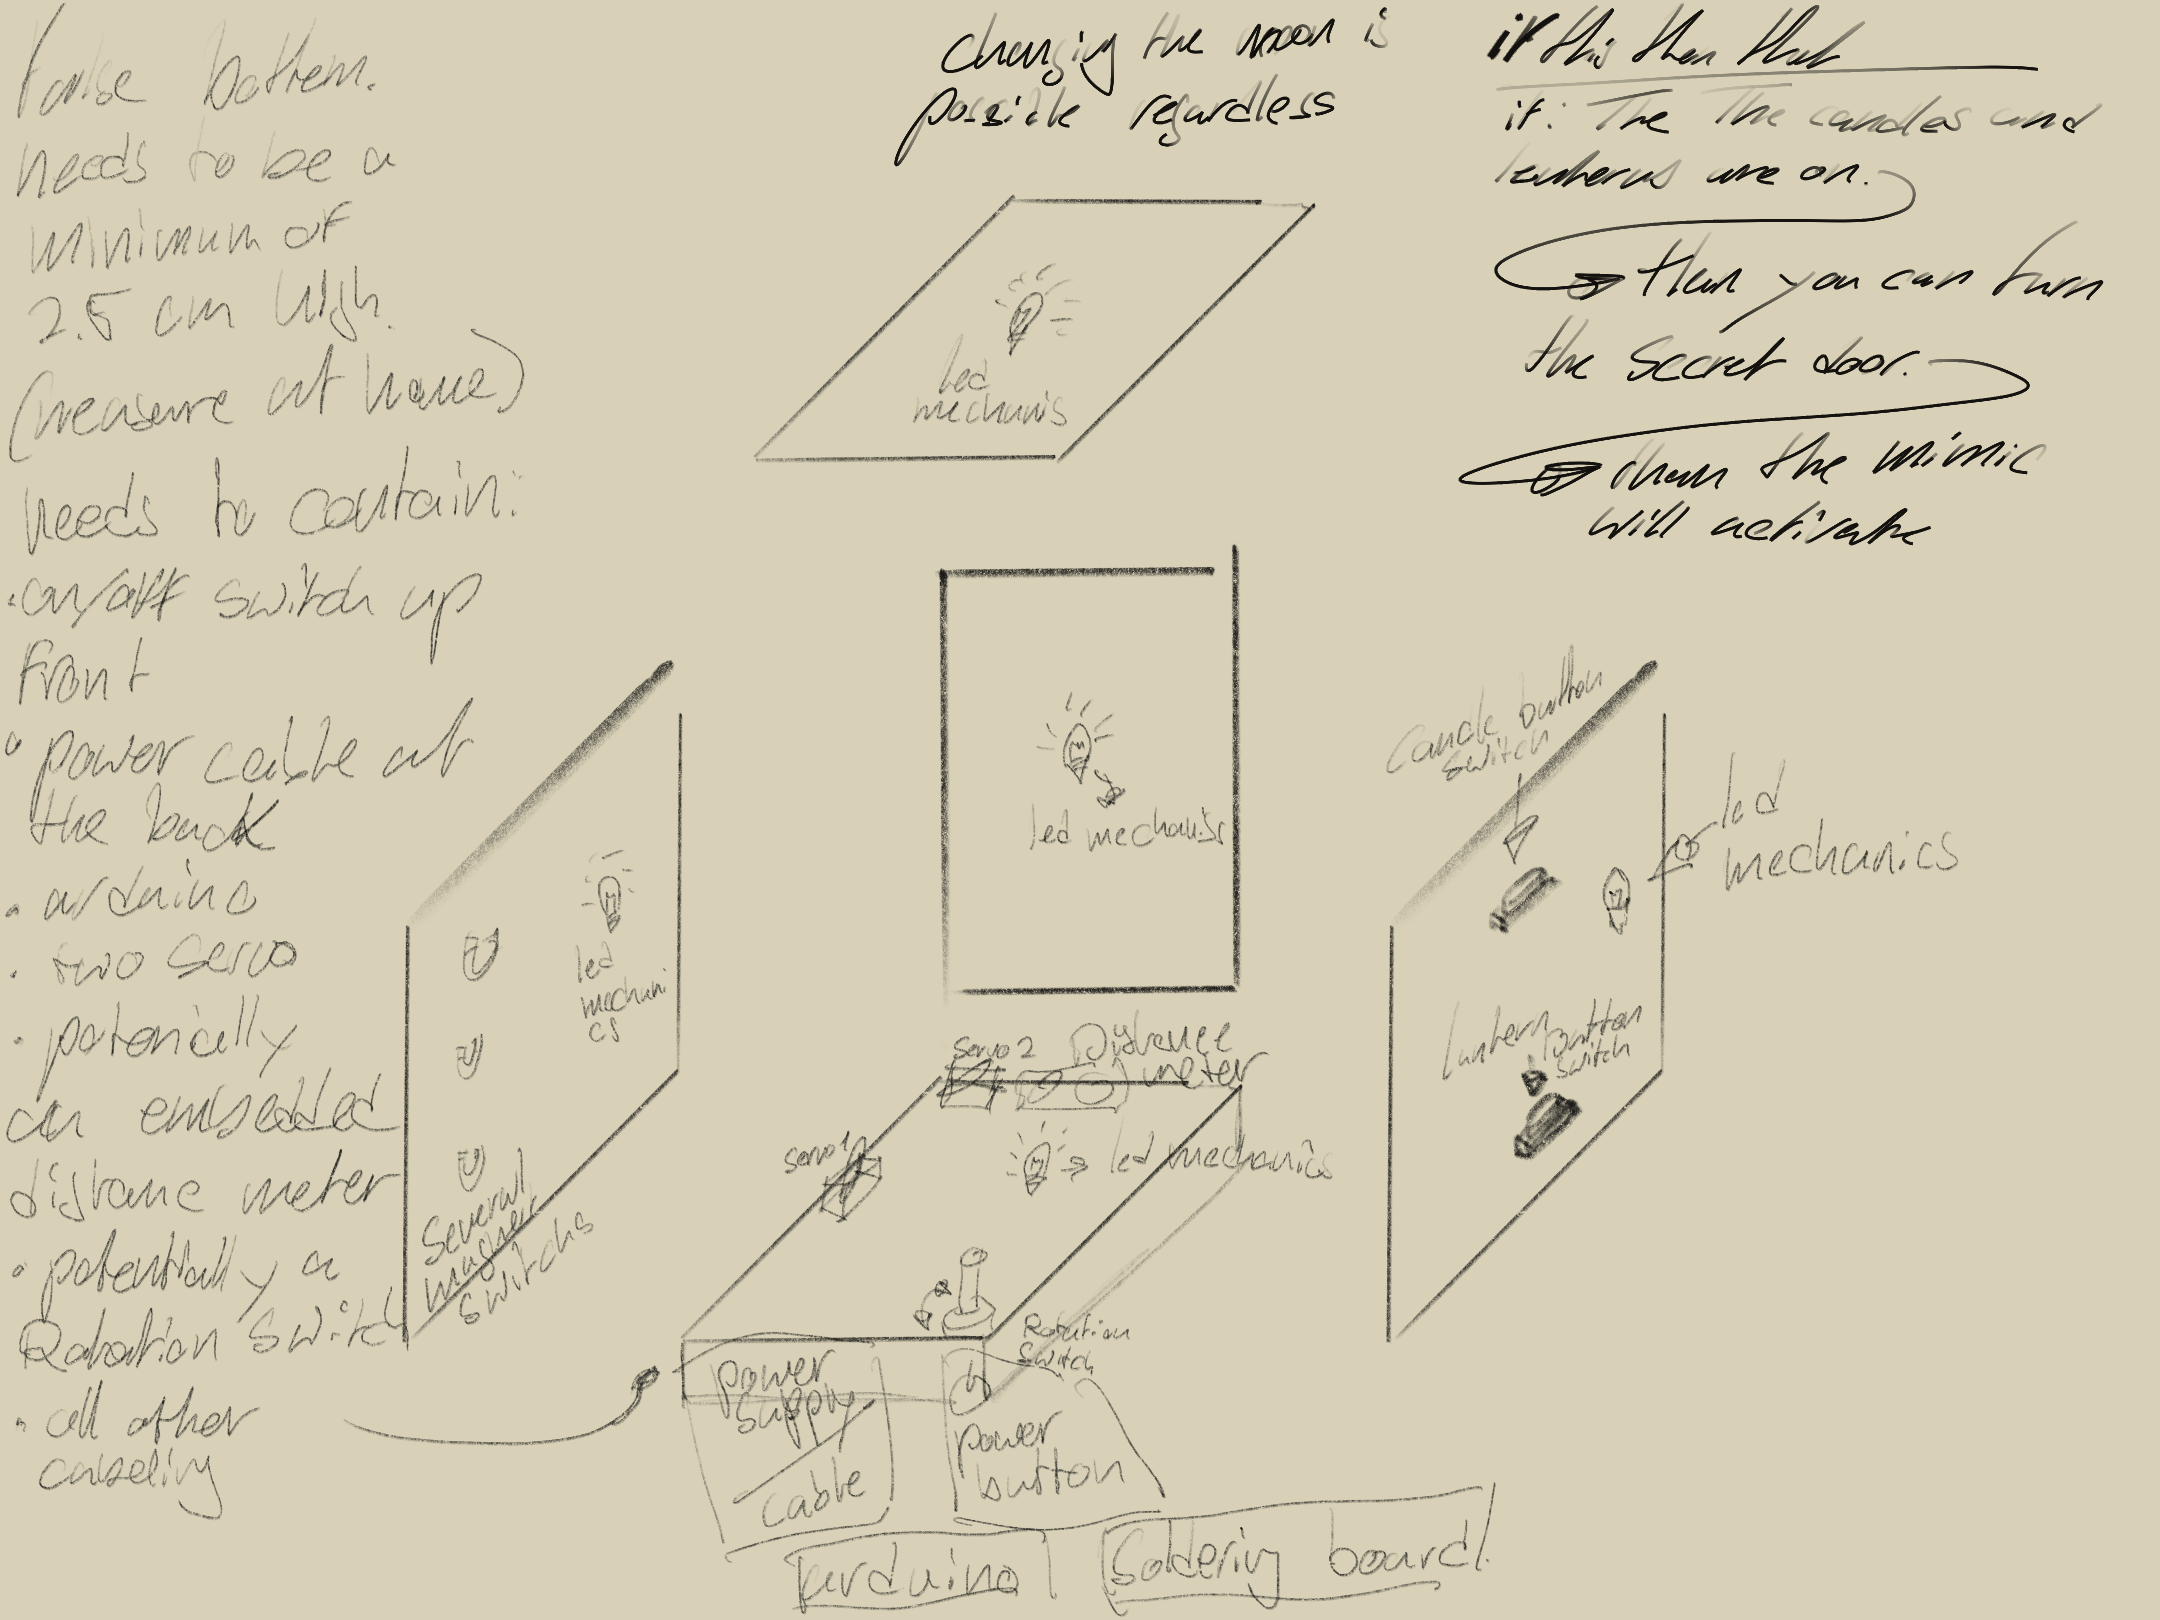 False bottem.
needs to be a
minimum of
2.5 cm high.
(measure at home)
needs to contain:
• on/off switch up
front
• power cable at
the back
• arduino
• two servo
• potenically
an embedded
distance meter
• potentially a
Rotation switch
• all other
cabeling
changing the moon is
possible regardless
if this then that
if: The The candles and
lanterns are on.
then you can turn
the secret door.
than the mimic
will activate
led
mechanis
led mechanisc
led
mechani
cs
Several
magnet
switchs
Candle button
switch
led
mechanics
lantern button
switch
Servo 2
Distance
meter
servo 1
led mechanics
Rotation
Switch
power
supply
cable
power
button
arduino
Soldering board